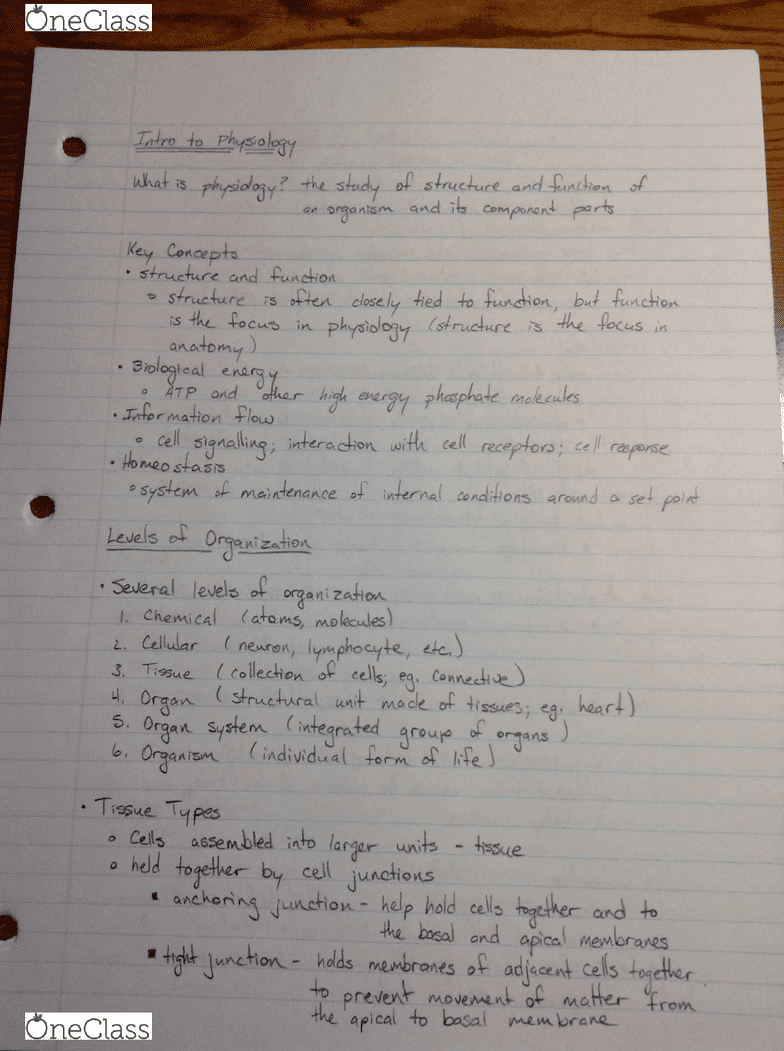 OneClass
Intro to Physiology
What is physiology? the study of structure and function of
an organism and its component parts
Key Concepts
• structure and function
o structure is often closely tied to function, but function
is the focus in physiology (structure is the focus in
anatomy)
• Biological energy
o ATP and other high energy phosphate molecules
• Information flow
o cell signalling; interaction with cell receptors; cell response
• Homeostasis
o system of maintenance of internal conditions around a set point
Levels of Organization
• Several levels of organization
1. Chemical (atoms, molecules)
2. Cellular (neuron, lymphocyte, etc.)
3. Tissue (collection of cells; eg. connective)
4. Organ (structural unit made of tissues; eg. heart)
5. Organ system (integrated group of organs)
6. Organism (individual form of life)
• Tissue Types
o Cells assembled into larger units - tissue
o held together by cell junctions
▪ anchoring junction - help hold cells together and to
the basal and apical membranes
▪ tight junction - holds membranes of adjacent cells together
to prevent movement of matter from
the apical to basal membrane
OneClass